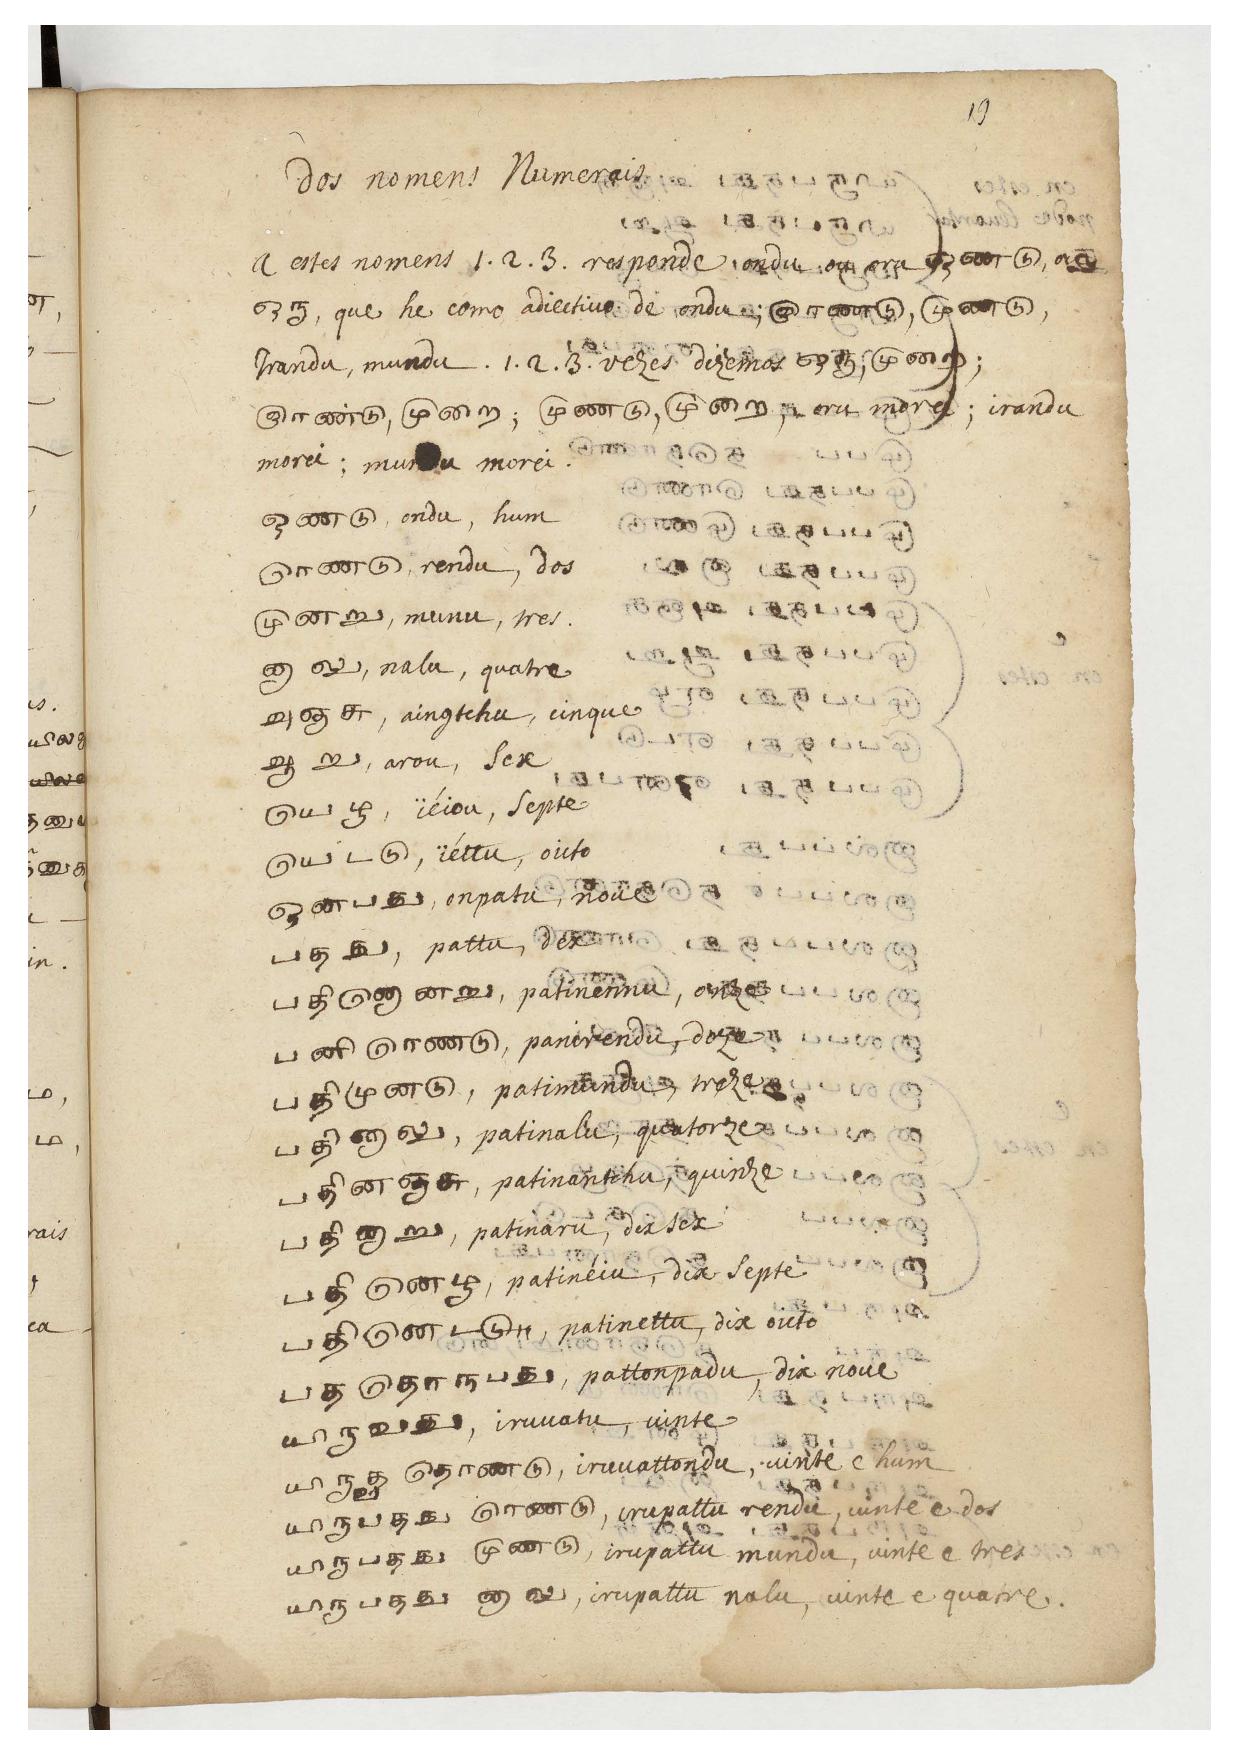 19
Dos nomens Numerais
A estes nomens 1. 2. 3. responde ondu ou oru ஒண்டு,
ஒரு, que he como adiectivo de ondu; ரெண்டு, முண்டு,
Irandu, mundu. 1. 2. 3. vezes dizemos ஒரு, முறை;
ரெண்டு, முறை; முண்டு, முறை, oru morei; irandu
morei; mundu morei.
ஒண்டு, ondu, hum
ரெண்டு, rendu, dos
முனறு, munu, tres.
னாலு, nalu, quatre
அஞசு, aingtchu, cinque
ஆறு, arou, sex
யெழு, ïéiou, septe
யெட்டு, ïéttu, oito
ஒனபது, onpatu, noue
பதது, pattu, dex
பதினொனறு, patinennu, onze
பனிரெண்டு, panirendu, doze
பதிமுண்டு, patimundu, treze
பதினாலு, patinalu, quatorze
பதினஞசு, patinantchu, quinze
பதினாறு, patinaru, dix sex
பதினெழு, patinéiu, dix septe
பதினெட்டு, patinettu, dix oito
பததொன்பது, pattonpadu, dix noue
யிருவது, iruuatu, vinte
யிருவத்தொண்டு, iruuattondu, vinte e hum
யிருபதது ரெண்டு, irupattu rendu, vinte e dos
யிருபதது முண்டு, irupattu mundu, vinte e tres
யிருபதது னாலு, irupattu nalu, vinte e quatre.